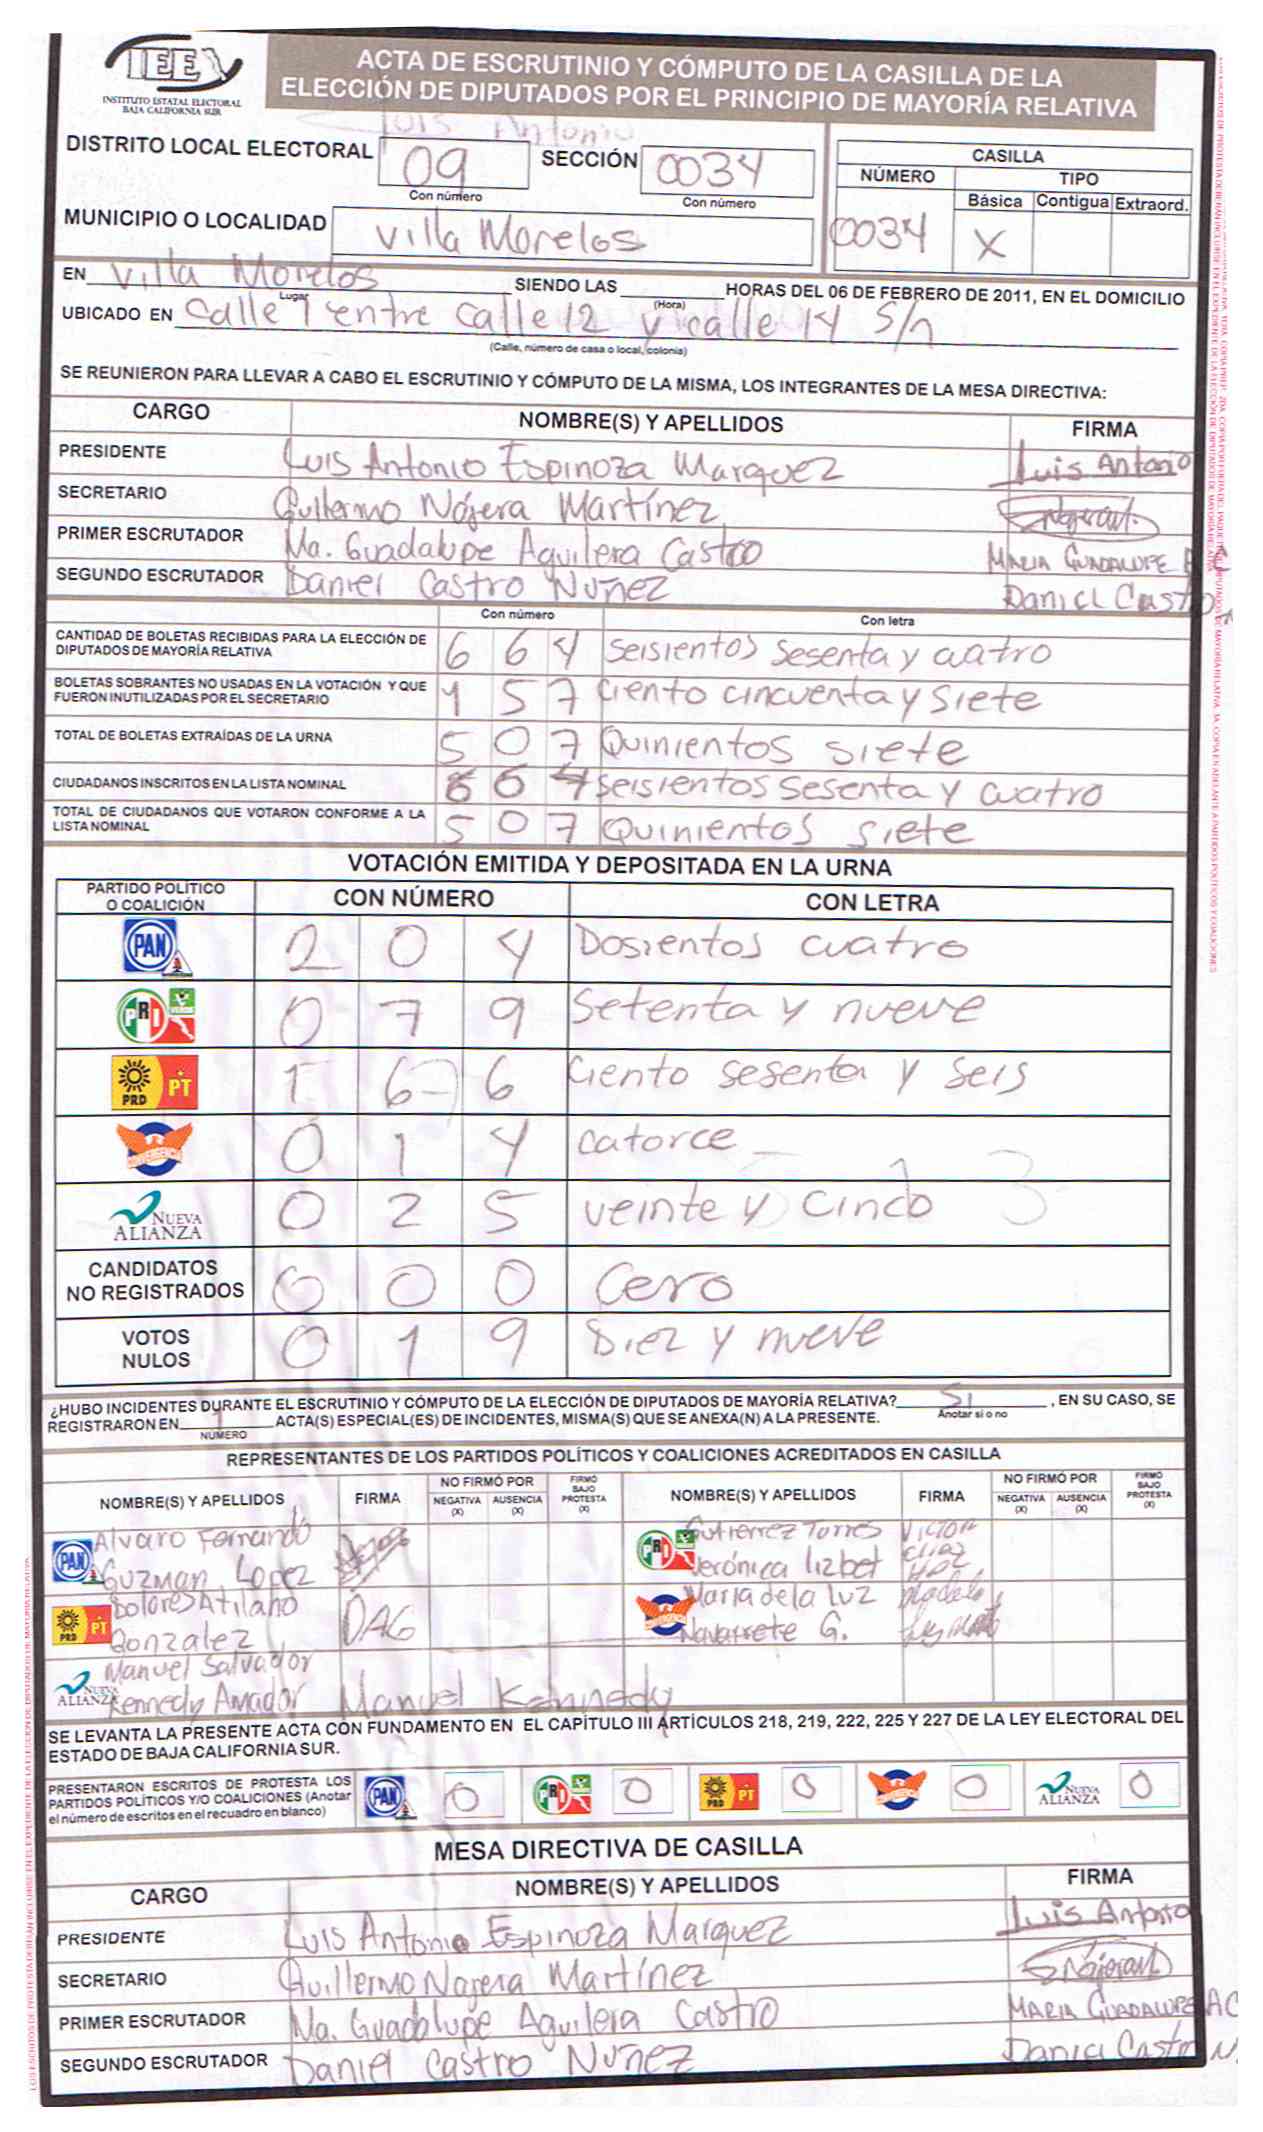 IEE
INSTITUTO ESTATAL ELECTORAL
BAJA CALIFORNIA SUR
ACTA DE ESCRUTINIO Y CÓMPUTO DE LA CASILLA DE LA
ELECCIÓN DE DIPUTADOS POR EL PRINCIPIO DE MAYORÍA RELATIVA
Luis Antonio
DISTRITO LOCAL ELECTORAL 09 SECCIÓN 0034
Con número Con número
CASILLA
NÚMERO TIPO
Básica Contigua Extraord.
0034 X
MUNICIPIO O LOCALIDAD Villa Morelos
EN Villa Morelos SIENDO LAS HORAS DEL 06 DE FEBRERO DE 2011, EN EL DOMICILIO
Lugar (Hora)
UBICADO EN Calle 1 entre calle 12 y calle 14 S/n
(Calle, número de casa o local, colonia)
SE REUNIERON PARA LLEVAR A CABO EL ESCRUTINIO Y CÓMPUTO DE LA MISMA, LOS INTEGRANTES DE LA MESA DIRECTIVA:
CARGO NOMBRE(S) Y APELLIDOS FIRMA
PRESIDENTE Luis Antonio Espinoza Marquez Luis Antonio
SECRETARIO Guillermo Nájera Martínez
PRIMER ESCRUTADOR Ma. Guadalupe Aguilera Castro MARIA GUADALUPE A C
SEGUNDO ESCRUTADOR Daniel Castro Nuñez Daniel Castro
Con número Con letra
CANTIDAD DE BOLETAS RECIBIDAS PARA LA ELECCIÓN DE
DIPUTADOS DE MAYORÍA RELATIVA 6 6 4 seisientos sesenta y cuatro
BOLETAS SOBRANTES NO USADAS EN LA VOTACIÓN Y QUE
FUERON INUTILIZADAS POR EL SECRETARIO 1 5 7 ciento cincuenta y siete
TOTAL DE BOLETAS EXTRAÍDAS DE LA URNA 5 0 7 Quinientos siete
CIUDADANOS INSCRITOS EN LA LISTA NOMINAL 6 6 4 seisientos sesenta y cuatro
TOTAL DE CIUDADANOS QUE VOTARON CONFORME A LA
LISTA NOMINAL 5 0 7 Quinientos siete
VOTACIÓN EMITIDA Y DEPOSITADA EN LA URNA
PARTIDO POLÍTICO
O COALICIÓN CON NÚMERO CON LETRA
PAN 2 0 4 Dosientos cuatro
PRI VERDE 0 7 9 Setenta y nueve
PRD PT 1 6 6 Ciento sesenta y seis
CONVERGENCIA 0 1 4 catorce
NUEVA
ALIANZA 0 2 5 veinte y cinco 3
CANDIDATOS
NO REGISTRADOS 0 0 0 Cero
VOTOS
NULOS 0 1 9 Diez y nueve
¿HUBO INCIDENTES DURANTE EL ESCRUTINIO Y CÓMPUTO DE LA ELECCIÓN DE DIPUTADOS DE MAYORÍA RELATIVA? Si , EN SU CASO, SE
Anotar si o no
REGISTRARON EN 1 ACTA(S) ESPECIAL(ES) DE INCIDENTES, MISMA(S) QUE SE ANEXA(N) A LA PRESENTE.
NÚMERO
REPRESENTANTES DE LOS PARTIDOS POLÍTICOS Y COALICIONES ACREDITADOS EN CASILLA
NOMBRE(S) Y APELLIDOS FIRMA NO FIRMÓ POR NEGATIVA (X) AUSENCIA (X) FIRMÓ BAJO PROTESTA (X) NOMBRE(S) Y APELLIDOS FIRMA NO FIRMÓ POR NEGATIVA (X) AUSENCIA (X) FIRMÓ BAJO PROTESTA (X)
PAN Alvaro Fernando
Guzman Lopez
PRI Gutierrez Torres
Verónica Lizbet
PRD PT Dolores Atilano
Gonzalez DAG
CONVERGENCIA Maria de la Luz
Navarrete G.
NUEVA ALIANZA Manuel Salvador
Kennedy Amador Manuel Kennedy
SE LEVANTA LA PRESENTE ACTA CON FUNDAMENTO EN EL CAPÍTULO III ARTÍCULOS 218, 219, 222, 225 Y 227 DE LA LEY ELECTORAL DEL
ESTADO DE BAJA CALIFORNIA SUR.
PRESENTARON ESCRITOS DE PROTESTA LOS
PARTIDOS POLÍTICOS Y/O COALICIONES (Anotar
el número de escritos en el recuadro en blanco)
PAN 0 PRI 0 PRD PT 0 CONVERGENCIA 0 NUEVA ALIANZA 0
MESA DIRECTIVA DE CASILLA
CARGO NOMBRE(S) Y APELLIDOS FIRMA
PRESIDENTE Luis Antonio Espinoza Marquez Luis Antonio
SECRETARIO Guillermo Najera Martínez
PRIMER ESCRUTADOR Ma. Guadalupe Aguilera Castro MARIA GUADALUPE A C
SEGUNDO ESCRUTADOR Daniel Castro Nuñez Daniel Castro N.